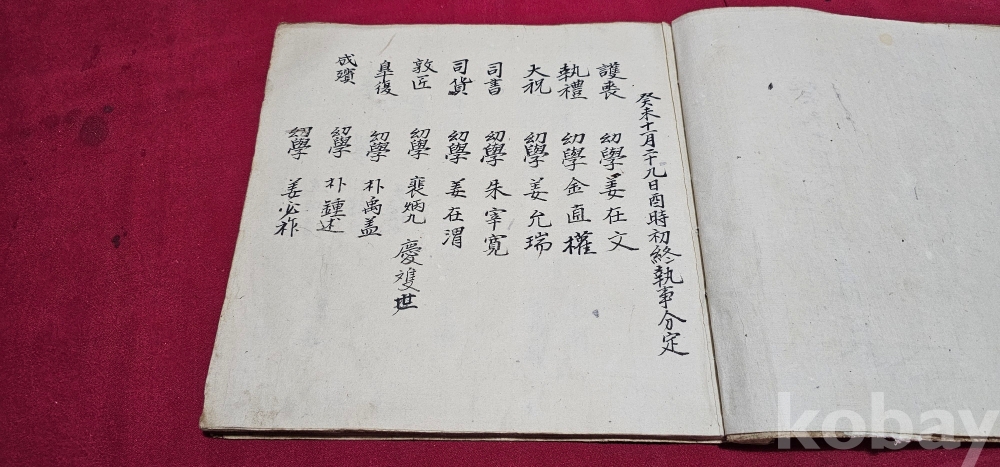 癸未十一月二十九日酉時初終執事分定
護喪 幼學 姜在文
執禮 幼學 金直權
大祝 幼學 姜允瑞
司書 幼學 朱宰寬
司貨 幼學 姜在渭
敦匠 幼學 裵炳九 慶雙世
皐復 幼學 朴禹盖
成殯 幼學 朴鍾述
幼學 姜必祚
kobay